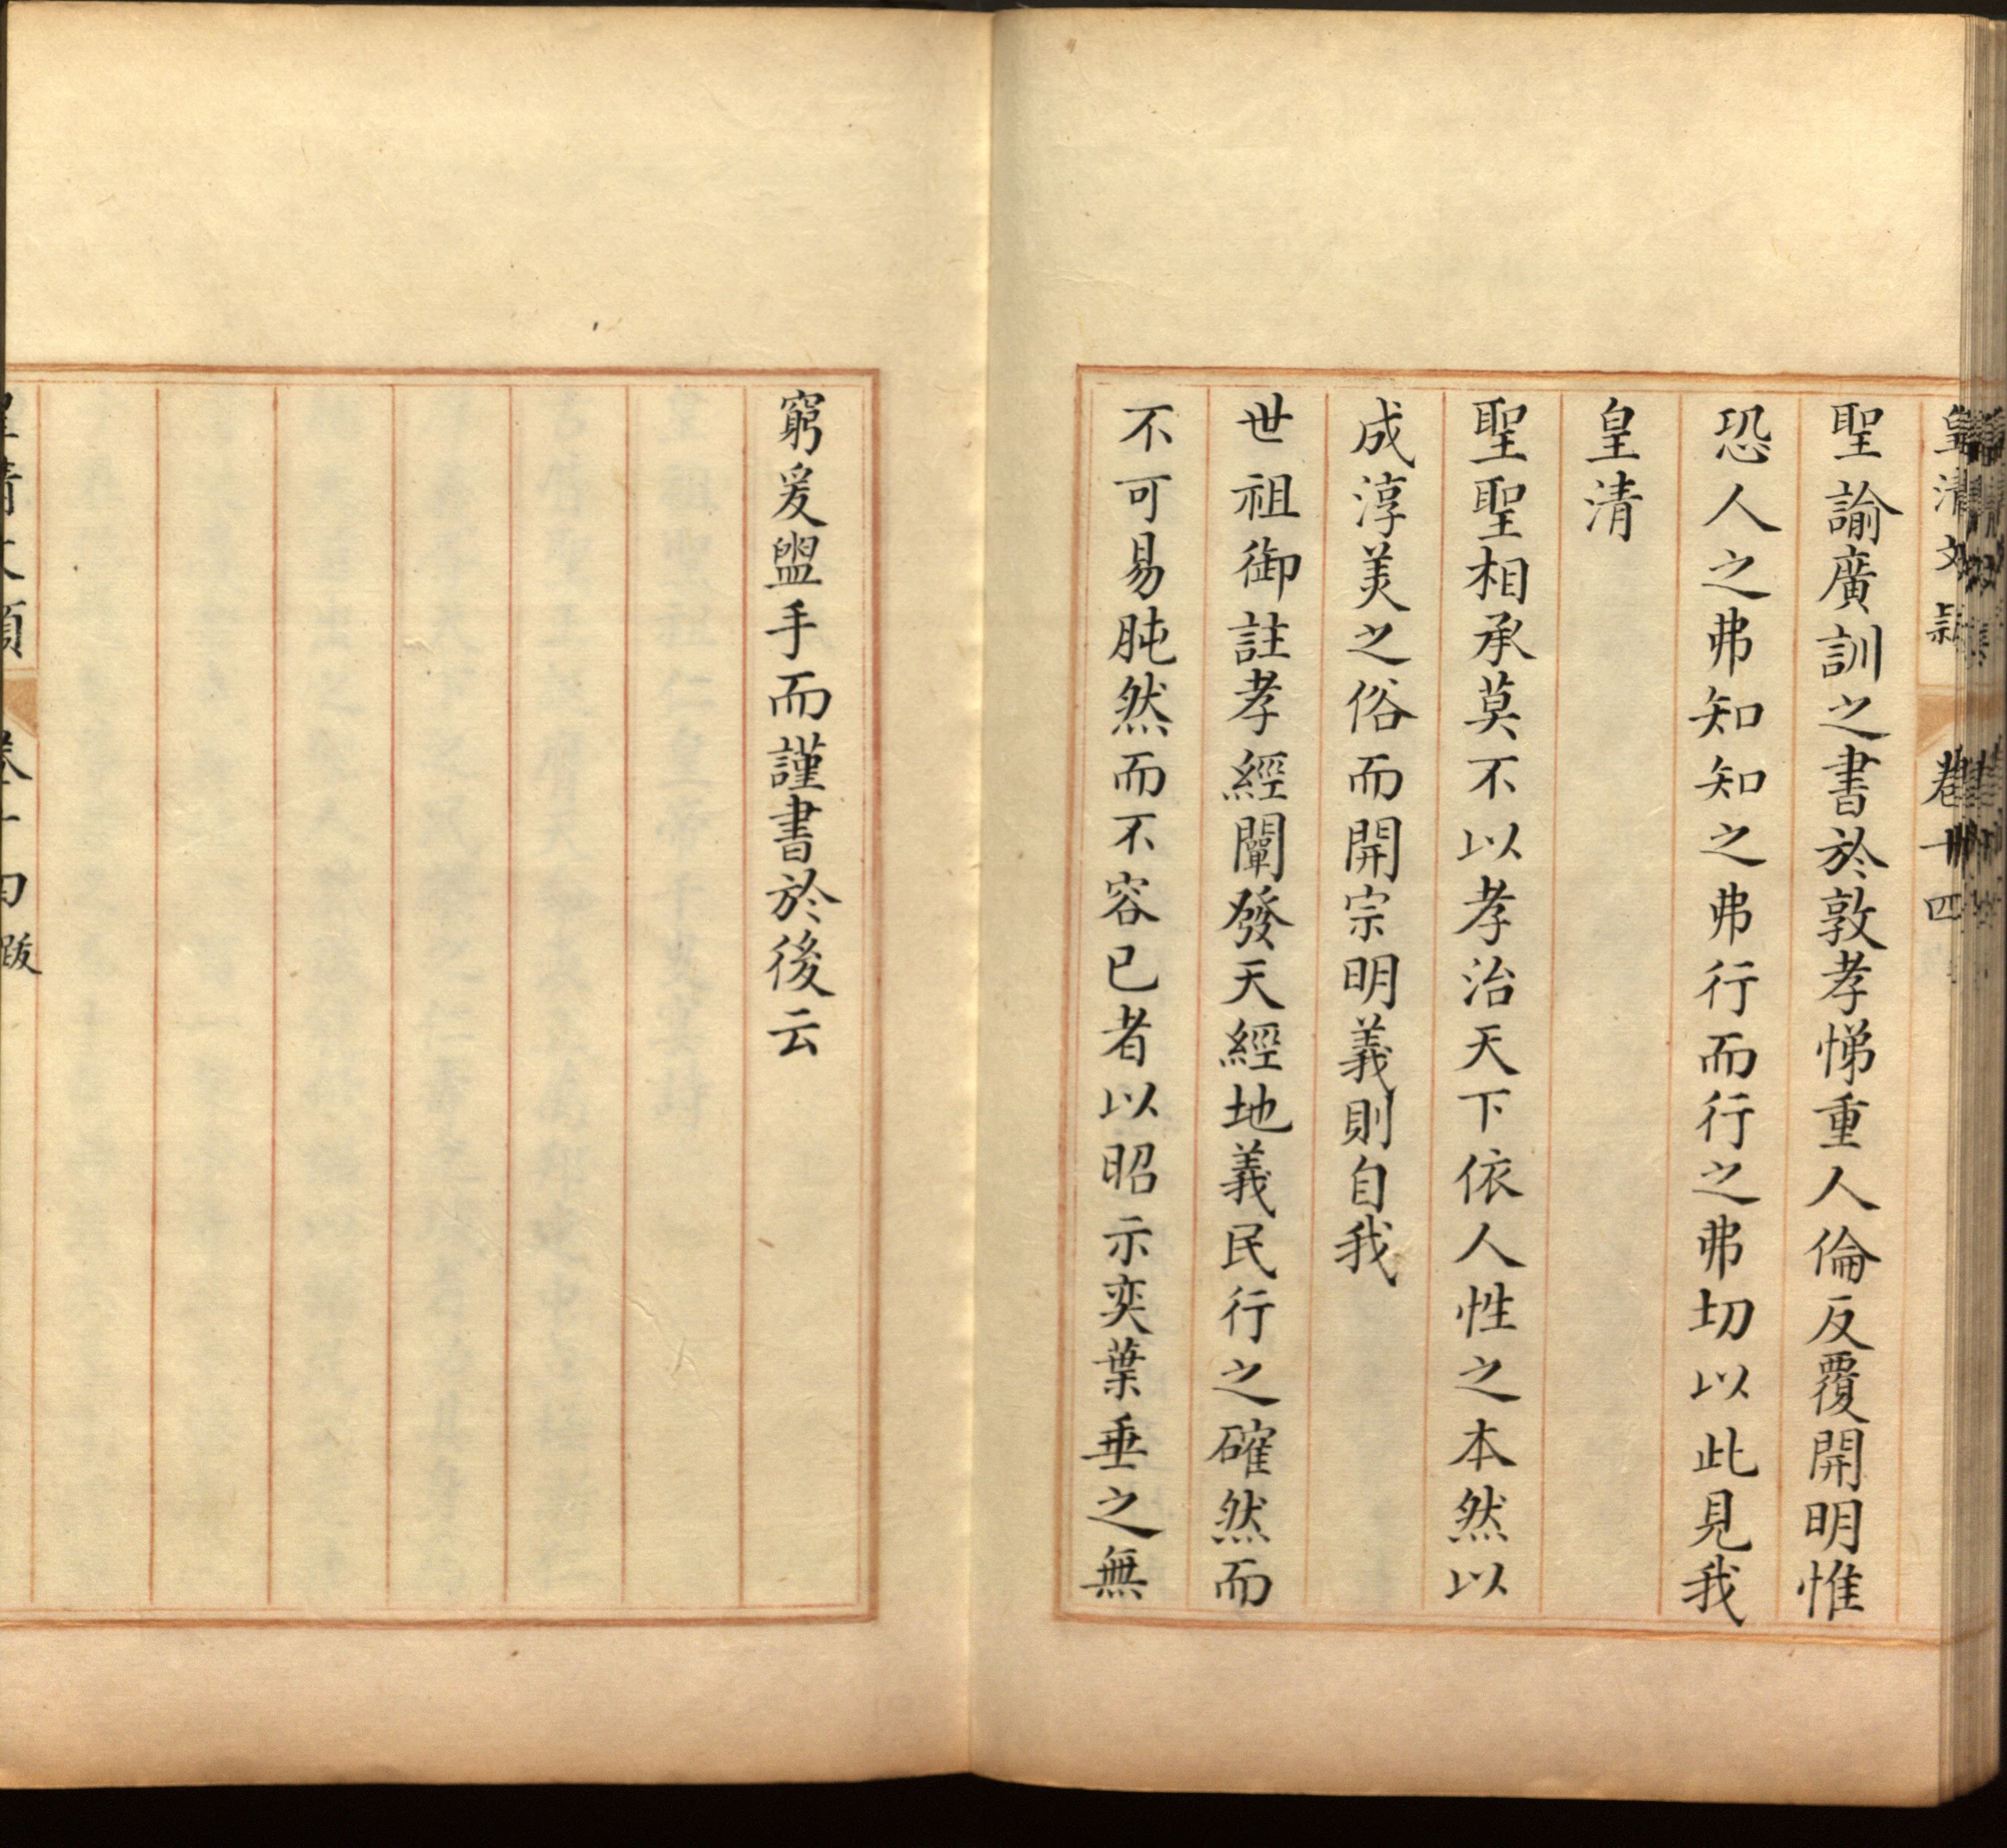 皇清文穎 卷十四
聖諭廣訓之書於敦孝悌重人倫反覆開明惟
恐人之弗知知之弗行而行之弗切以此見我
皇清
聖聖相承莫不以孝治天下依人性之本然以
成淳美之俗而開宗明義則自我
世祖御註孝經闡發天經地義民行之確然而
不可易肫然而不容已者以昭示奕葉垂之無
窮爰盥手而謹書於後云
皇清文穎 卷十四 跋